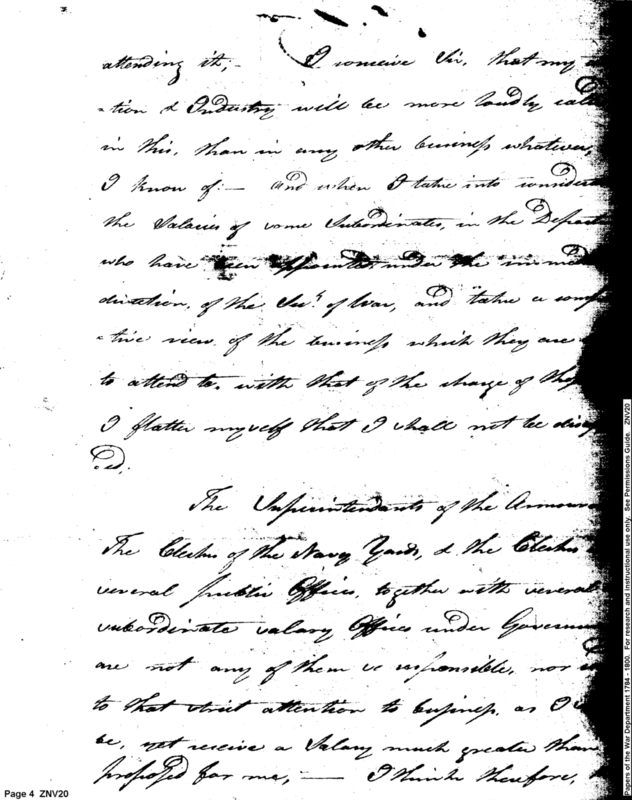 attending it,- I conceive Sir, that my
-tion & Industry will be more loudly call
in this, than in any other business whatever,
I know of:- and when I take into consider
the Salaries of some Subordinates, in the Depart
who have been appointed under the immed
direction of the Secy. of War, and take a comp
-tive view of the business which they are
to attend to, with that of the charge of the
I flatter myself that I shall not be disap
ed.
The Superintendants of the Armour
The Clerks of the Navy Yards, & the Clerks
several public Offices, together with several
subordinate salary Offices under Governm
are not any of them so responsible, nor
to that strict attention to business, as I
be, yet receive a Salary much greater than
proposed for me,- I think therefore,
Page 4 ZNV20
Papers of the War Department 1784 - 1800. For research and instructional use only. See Permissions Guide. ZNV20